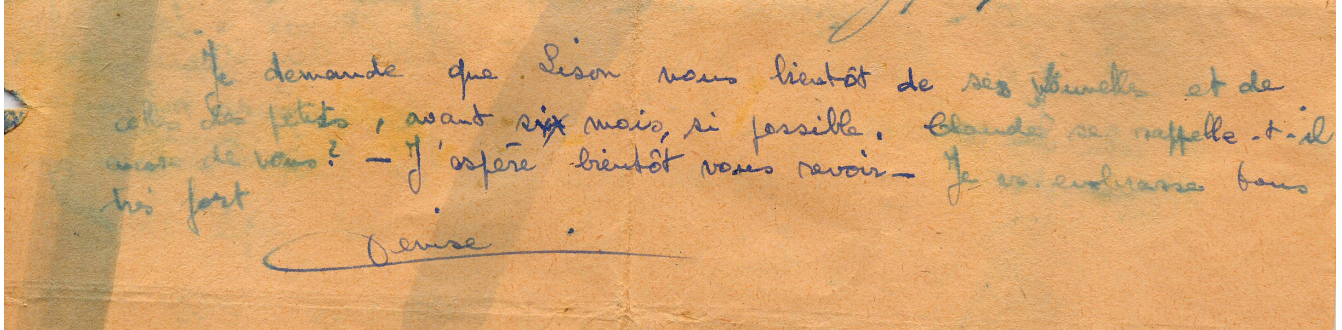 Je demande que Lison nous bientôt de ses nouvelles et de
celles des petits, avant six mois, si possible. Claude se rappelle-t-il
encore de nous ? — J'espère bientôt vous revoir — Je v. embrasse tous
très fort
Denise